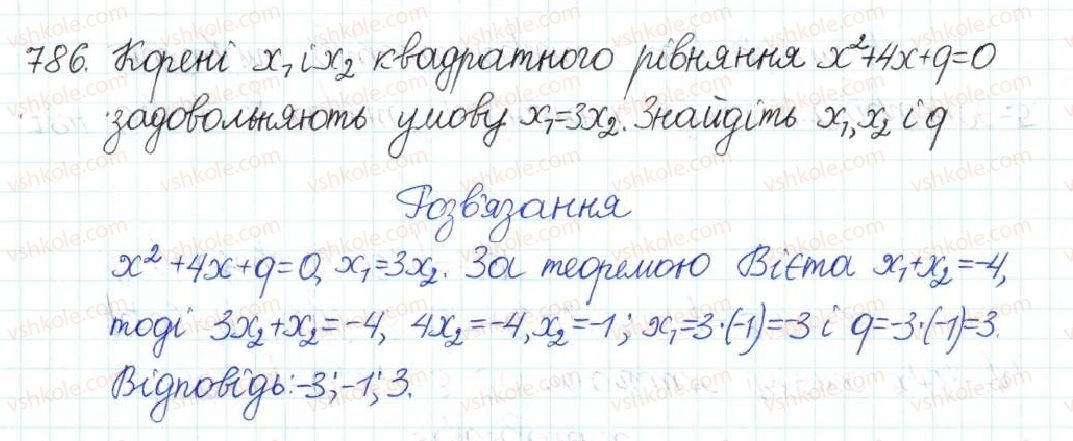 786. Корені x₁ і x₂ квадратного рівняння x²+4x+q=0
задовольняють умову x₁=3x₂. Знайдіть x₁, x₂ і q
Розв'язання
x²+4x+q=0, x₁=3x₂. За теоремою Вієта x₁+x₂=-4,
тоді 3x₂+x₂=-4, 4x₂=-4, x₂=-1; x₁=3·(-1)=-3 і q=-3·(-1)=3.
Відповідь: -3; -1; 3.